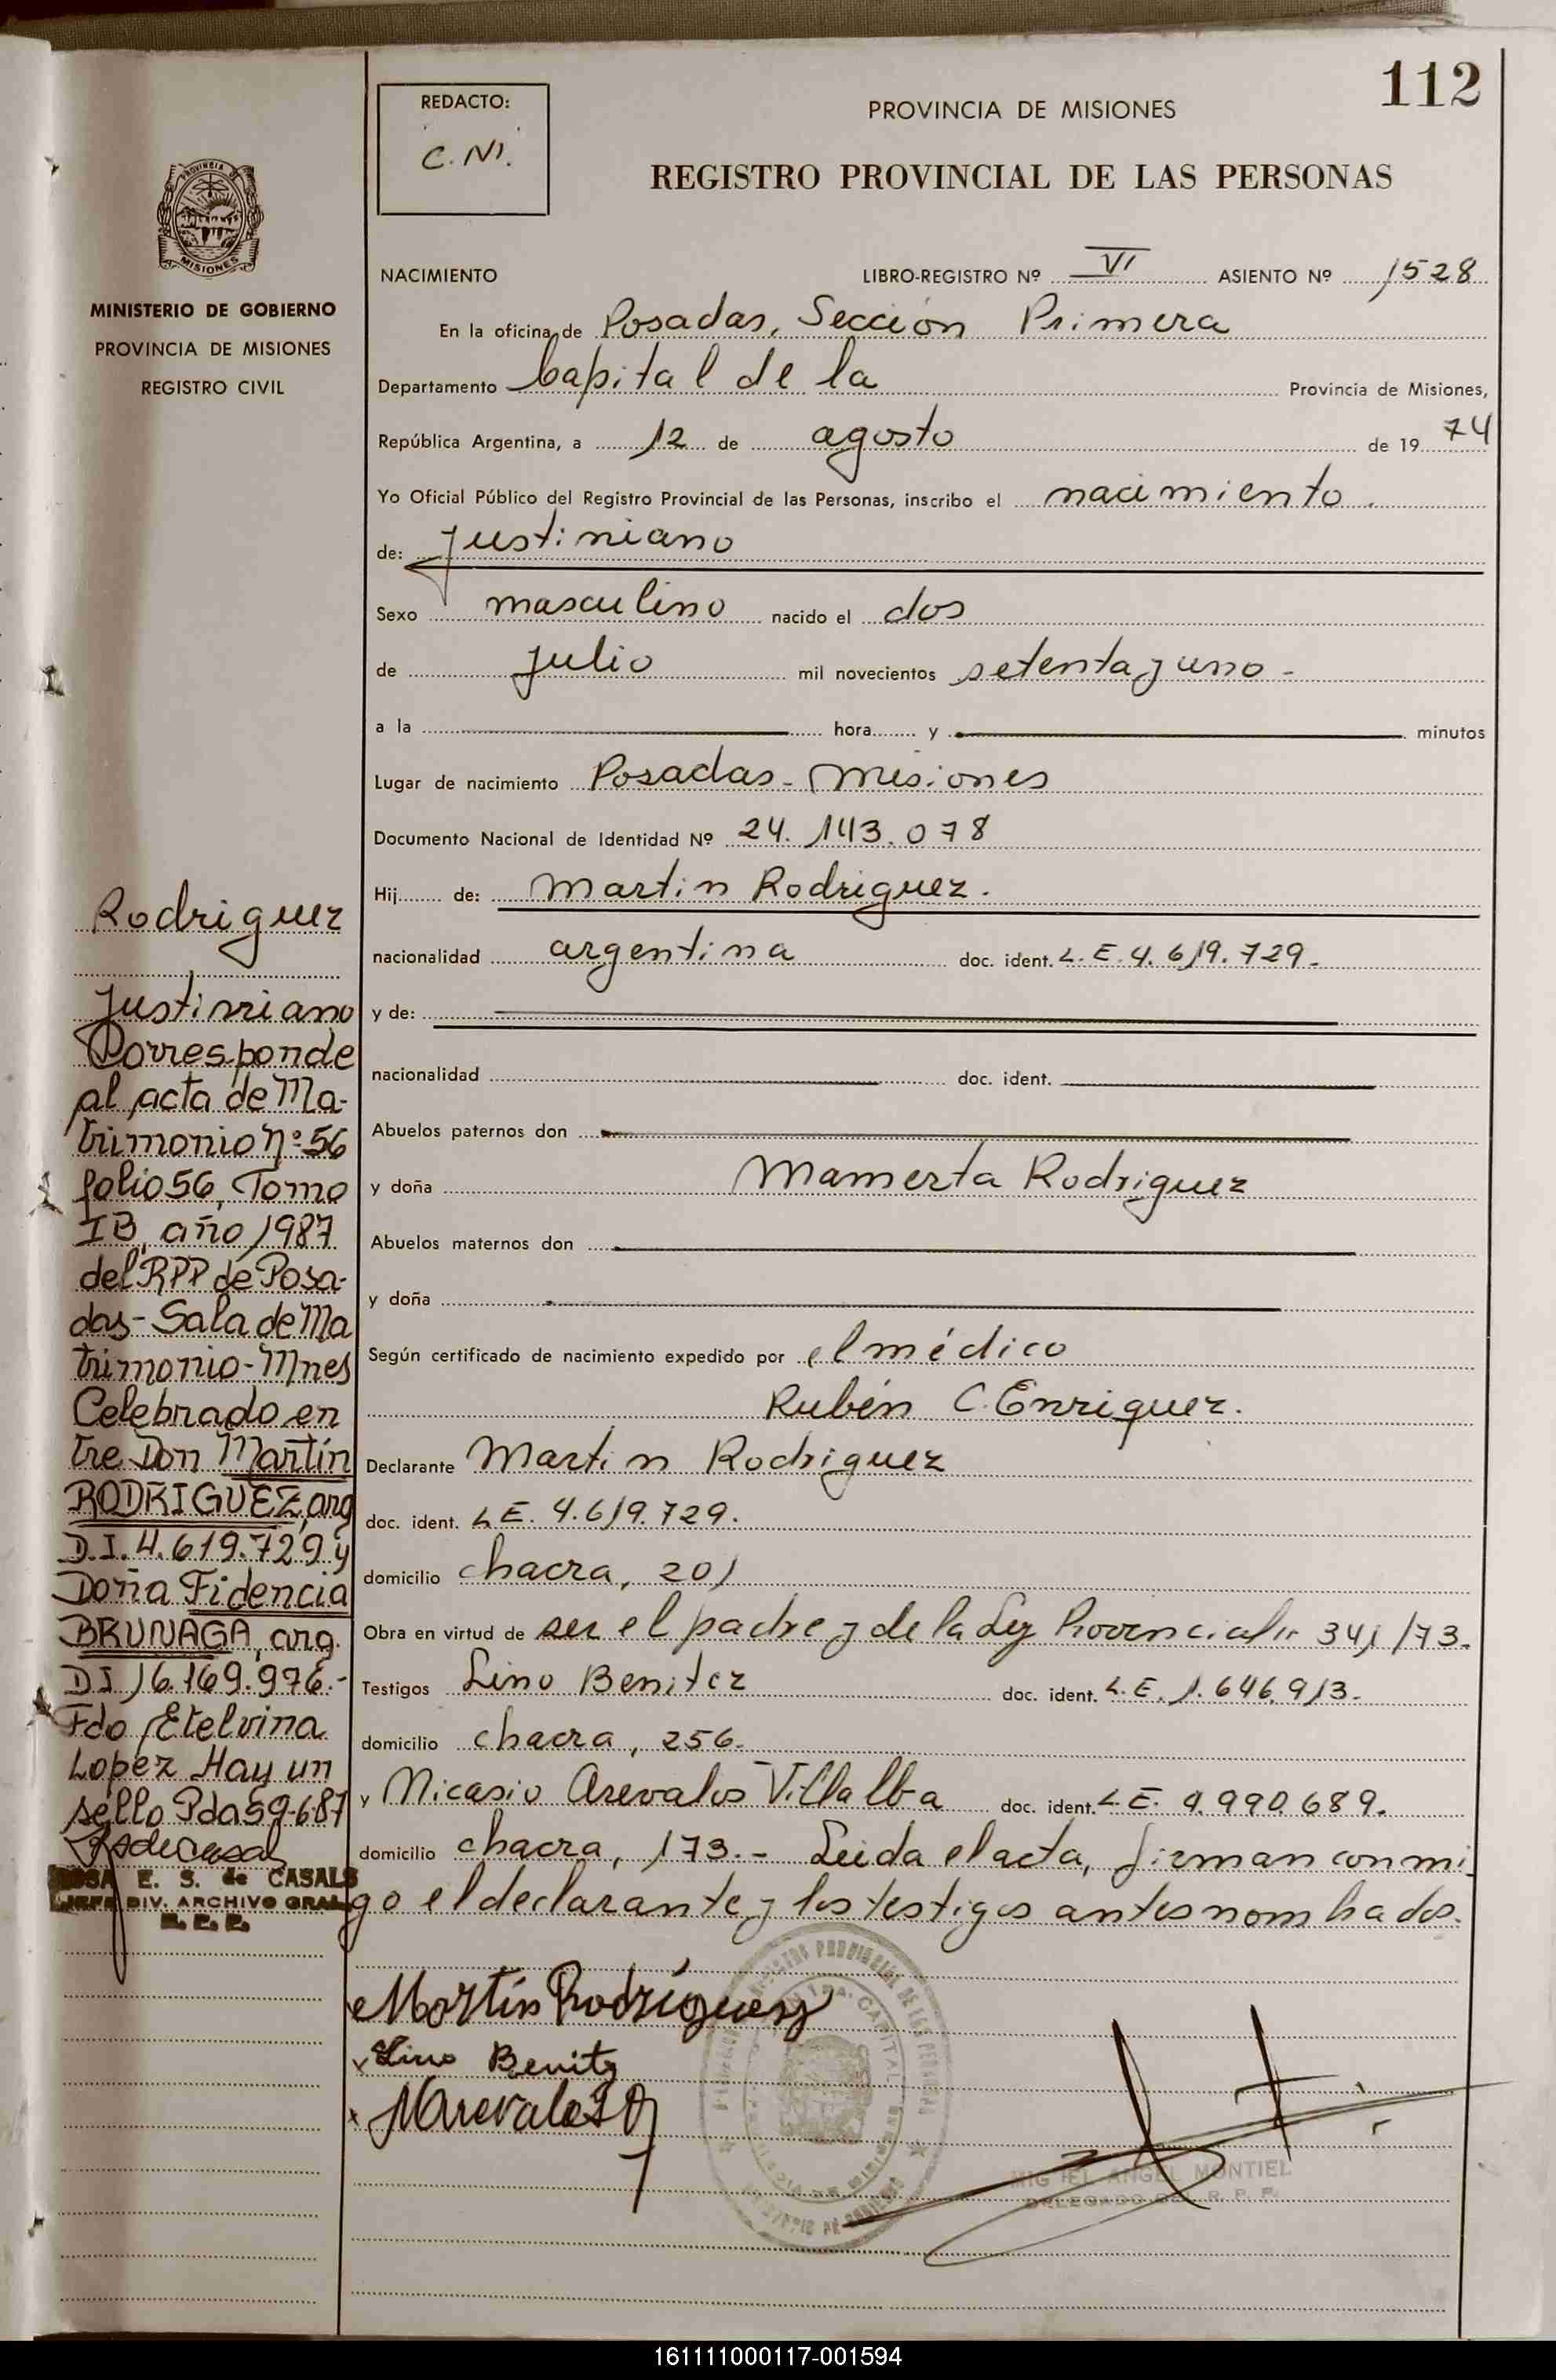 112
REDACTO:
C. N.
PROVINCIA DE MISIONES
REGISTRO PROVINCIAL DE LAS PERSONAS
PROVINCIA
MISIONES
MINISTERIO DE GOBIERNO
PROVINCIA DE MISIONES
REGISTRO CIVIL
NACIMIENTO LIBRO-REGISTRO Nº VI ASIENTO Nº 1528
En la oficina de Posadas, Sección Primera
Departamento Capital de la Provincia de Misiones,
República Argentina, a 12 de agosto de 19 74
Yo Oficial Público del Registro Provincial de las Personas, inscribo el nacimiento.
de: Justiniano
Sexo masculino nacido el dos
de julio mil novecientos setenta y uno -
a la hora y minutos
Lugar de nacimiento Posadas - Misiones
Documento Nacional de Identidad Nº 24.143.078
Hij de: Martin Rodriguez.
nacionalidad argentina doc. ident. L.E. 4.619.729.
y de:
nacionalidad doc. ident.
Abuelos paternos don
y doña Mamerta Rodriguez
Abuelos maternos don
y doña
Según certificado de nacimiento expedido por el médico
Rubén C. Enriquez.
Declarante Martin Rodriguez
doc. ident. L.E. 4.619.729.
domicilio chacra, 201
Obra en virtud de ser el padre y de la Ley Provincial 341/73.
Testigos Lino Benitez doc. ident. L.E. 1.646.913.
domicilio chacra, 256.
y Nicasio Arevalos Villalba doc. ident. L.E. 4.990.689.
domicilio chacra, 173.- Leida el acta, firman conmi
go el declarante y los testigos antes nombrados.
Rodriguez
Justiniano
Corresponde
al acta de Ma-
trimonio Nº 56
folio 56, Tomo
IB, año 1987
del RPP de Posa-
das - Sala de Ma
trimonio - Mnes
Celebrado en
tre Don Martín
RODRIGUEZ, arg
D.I. 4.619.729 y
Doña Fidencia
BRUNAGA, arg.
DI 16.169.976.-
Fdo Etelvina
Lopez Hay un
sello Pdas 9-6-87
E. S. de CASALS
JEFE DIV. ARCHIVO GRAL
Martín Rodríguez
Lino Benitez
NArevalos
MIGUEL ANGEL MONTIEL
DELEGADO DEL R. P. P.
161111000117-001594